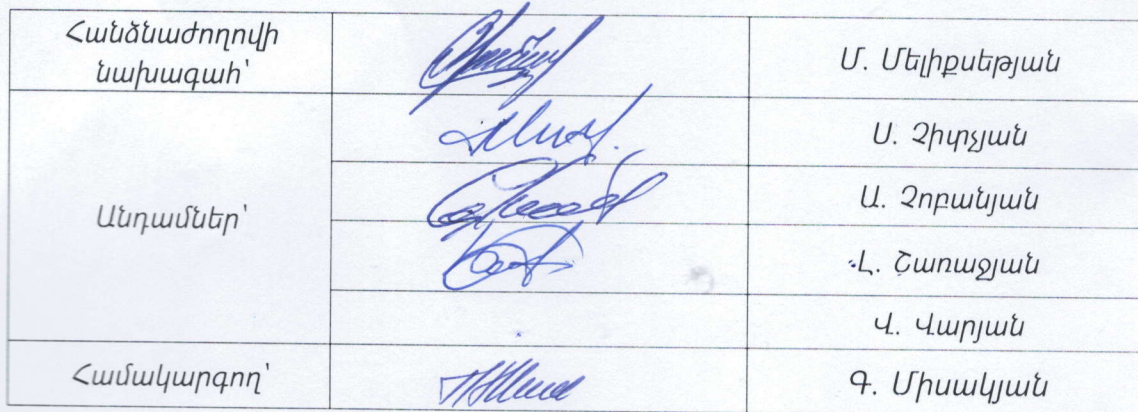 Հանձնաժողովի
նախագահ՝
Մ. Մելիքսեթյան
Ս. Չիփչյան
Անդամներ՝
Ա. Չոբանյան
Լ. Շառաջյան
Վ. Վարյան
Համակարգող՝
Գ. Միսակյան